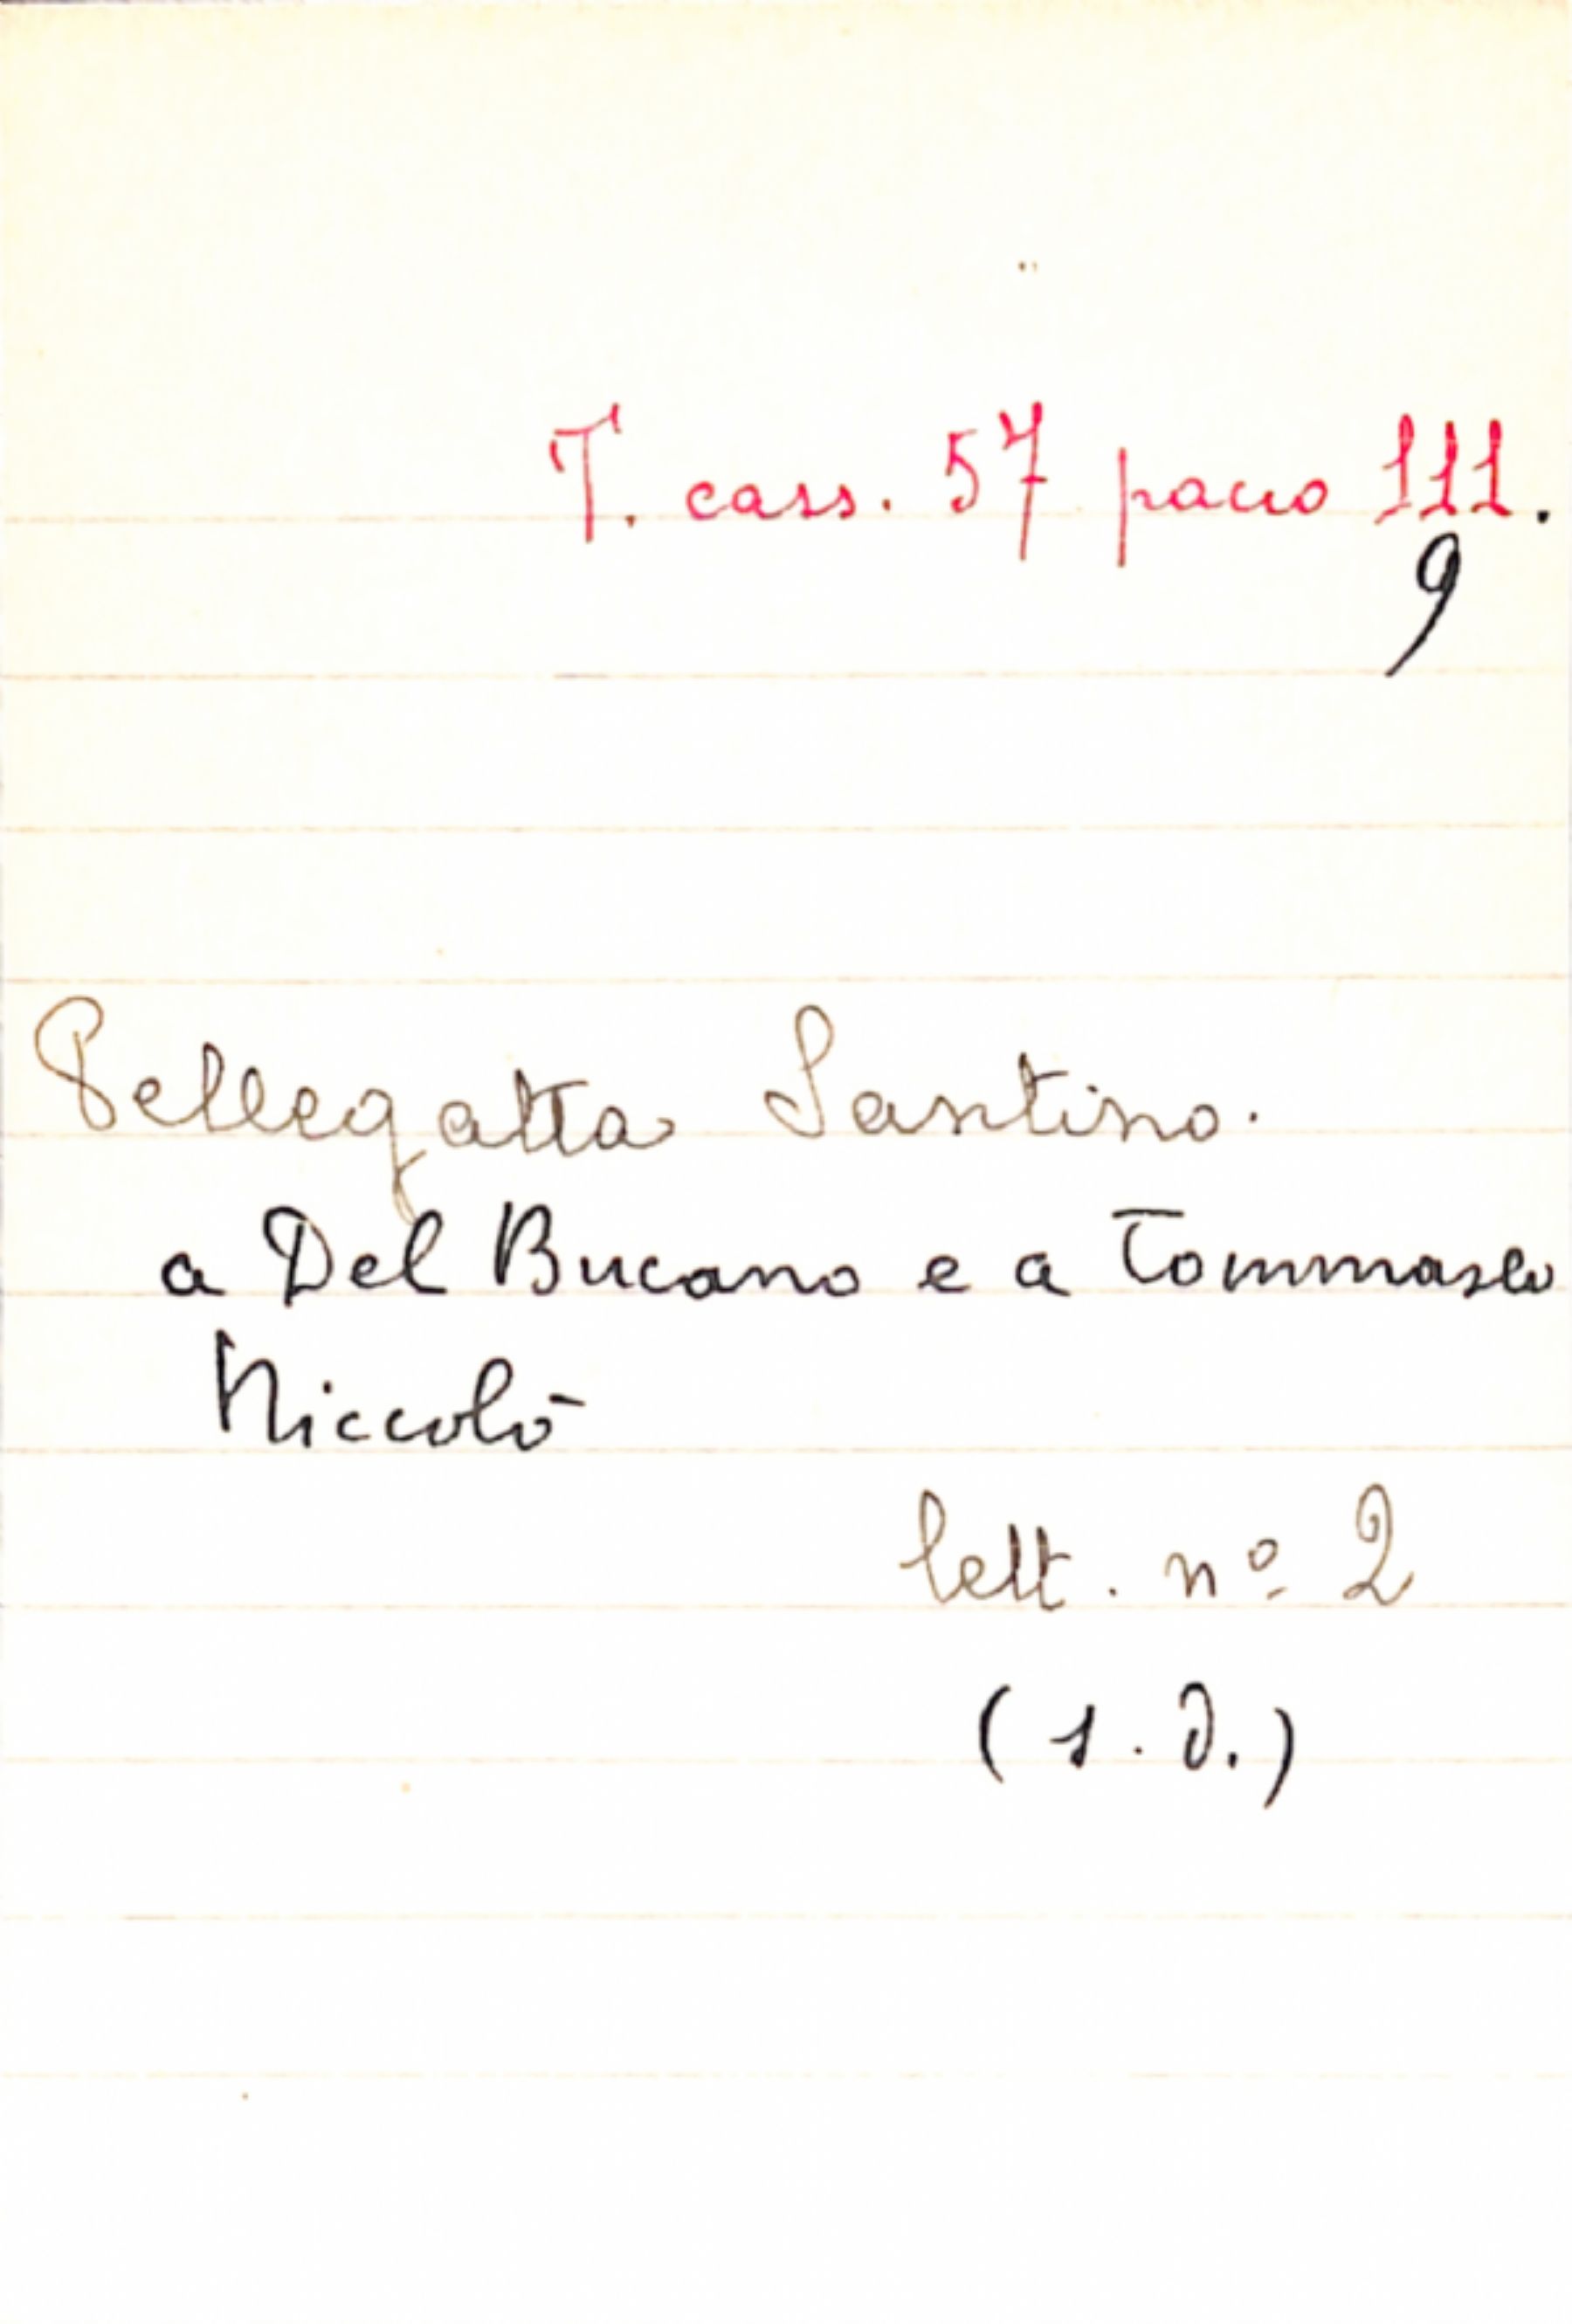 T. cass. 57 pacco 111.
9
Pellegatta Santino.
a Del Bucano e a Tommaseo
Niccolò
lett. nº 2
(s. d.)